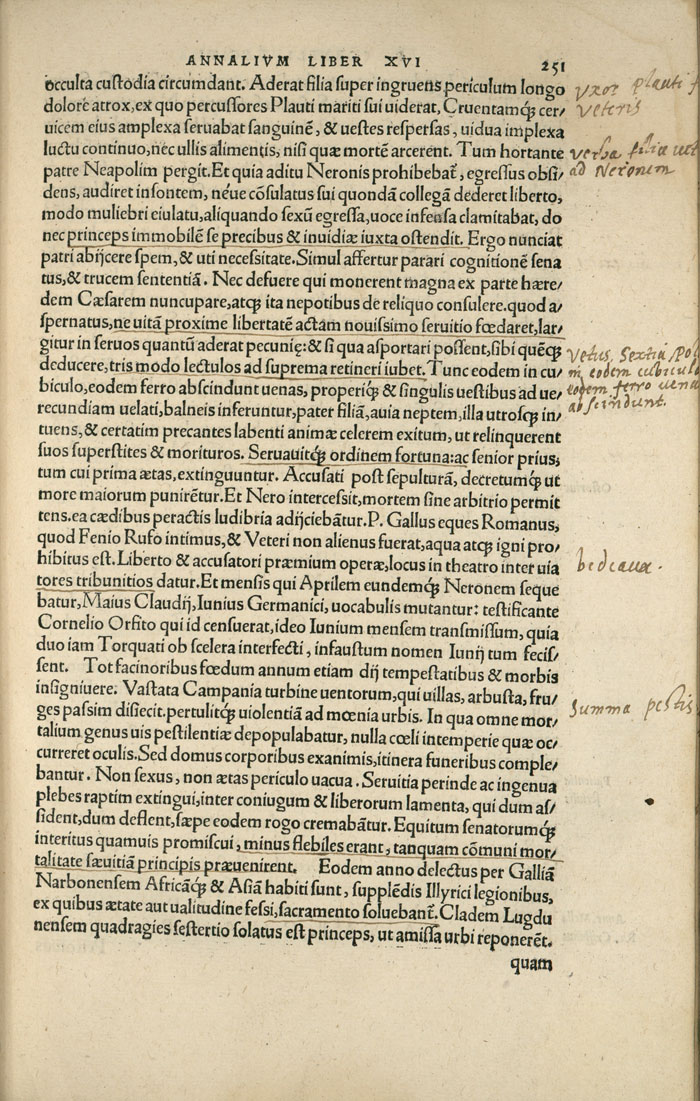 ANNALIVM LIBER XVI 251
occulta custodia circumdant. Aderat filia super ingruens periculum longo
dolore atrox, ex quo percussores Plauti mariti sui uiderat, Cruentamqꝫ cer/
uicem eius amplexa seruabat sanguinē, & uestes respersas, uidua implexa
luctu continuo, nec ullis alimentis, nisi quæ mortē arcerent. Tum hortante
patre Neapolim pergit. Et quia aditu Neronis prohibebat̄, egressus obsi/
dens, audiret insontem, néue cōsulatus sui quondā collegā dederet liberto,
modo muliebri eiulatu, aliquando sexū egressa, uoce infensa clamitabat, do
nec princeps immobilē se precibus & inuidiæ iuxta ostendit. Ergo nunciat
patri abijcere spem, & uti necessitate. Simul affertur parari cognitionē sena
tus, & trucem sententiā. Nec defuere qui monerent magna ex parte hære/
dem Cæsarem nuncupare, atqꝫ ita nepotibus de reliquo consulere. quod a/
spernatus, ne uitā proxime libertatē actam nouissimo seruitio fœdaret, lar/
gitur in seruos quantū aderat pecunię: & si qua asportari possent, sibi quēqꝫ
deducere, tris modo lectulos ad suprema retineri iubet. Tunc eodem in cu/
biculo, eodem ferro abscindunt uenas, properiqꝫ & singulis uestibus ad ue/
recundiam uelati, balneis inferuntur, pater filiā, auia neptem, illa utrosqꝫ in/
tuens, & certatim precantes labenti animæ celerem exitum, ut relinquerent
suos superstites & morituros. Seruauitqꝫ ordinem fortuna: ac senior prius,
tum cui prima ætas, extinguuntur. Accusati post sepulturā, decretumqꝫ ut
more maiorum punirētur. Et Nero intercessit, mortem sine arbitrio permit
tens. ea cædibus peractis ludibria adijciebātur. P. Gallus eques Romanus,
quod Fenio Rufo intimus, & Veteri non alienus fuerat, aqua atqꝫ igni pro/
hibitus est. Liberto & accusatori præmium operæ, locus in theatro inter uia
tores tribunitios datur. Et mensis qui Aprilem eundemqꝫ Neronem seque
batur, Maius Claudij, Iunius Germanici, uocabulis mutantur: testificante
Cornelio Orfito qui id censuerat, ideo Iunium mensem transmissum, quia
duo iam Torquati ob scelera interfecti, infaustum nomen Iunij tum fecis/
sent. Tot facinoribus fœdum annum etiam dij tempestatibus & morbis
insigniuere. Vastata Campania turbine uentorum, qui uillas, arbusta, fru/
ges passim disiecit. pertulitqꝫ uiolentiā ad mœnia urbis. In qua omne mor/
talium genus uis pestilentiæ depopulabatur, nulla cœli intemperie quæ oc/
curreret oculis. Sed domus corporibus exanimis, itinera funeribus comple/
bantur. Non sexus, non ætas periculo uacua. Seruitia perinde ac ingenua
plebes raptim extingui, inter coniugum & liberorum lamenta, qui dum as/
sident, dum deflent, sæpe eodem rogo cremabātur. Equitum senatorumqꝫ
interitus quamuis promiscui, minus flebiles erant, tanquam cōmuni mor/
talitate sæuitiā principis præuenirent. Eodem anno delectus per Galliā
Narbonensem Africāqꝫ & Asiā habiti sunt, supplēdis Illyrici legionibus,
ex quibus ætate aut ualitudine fessi, sacramento soluebant̄. Cladem Lugdu
nensem quadragies sestertio solatus est princeps, ut amissa urbi reponerēt.
quam
vxor plauti f
veteris
verba filiæ
ad Neronem
Vetus, Sextia, Pol
eodem cubiculo
eodem ferro uena
abscindunt.
Summa pestis